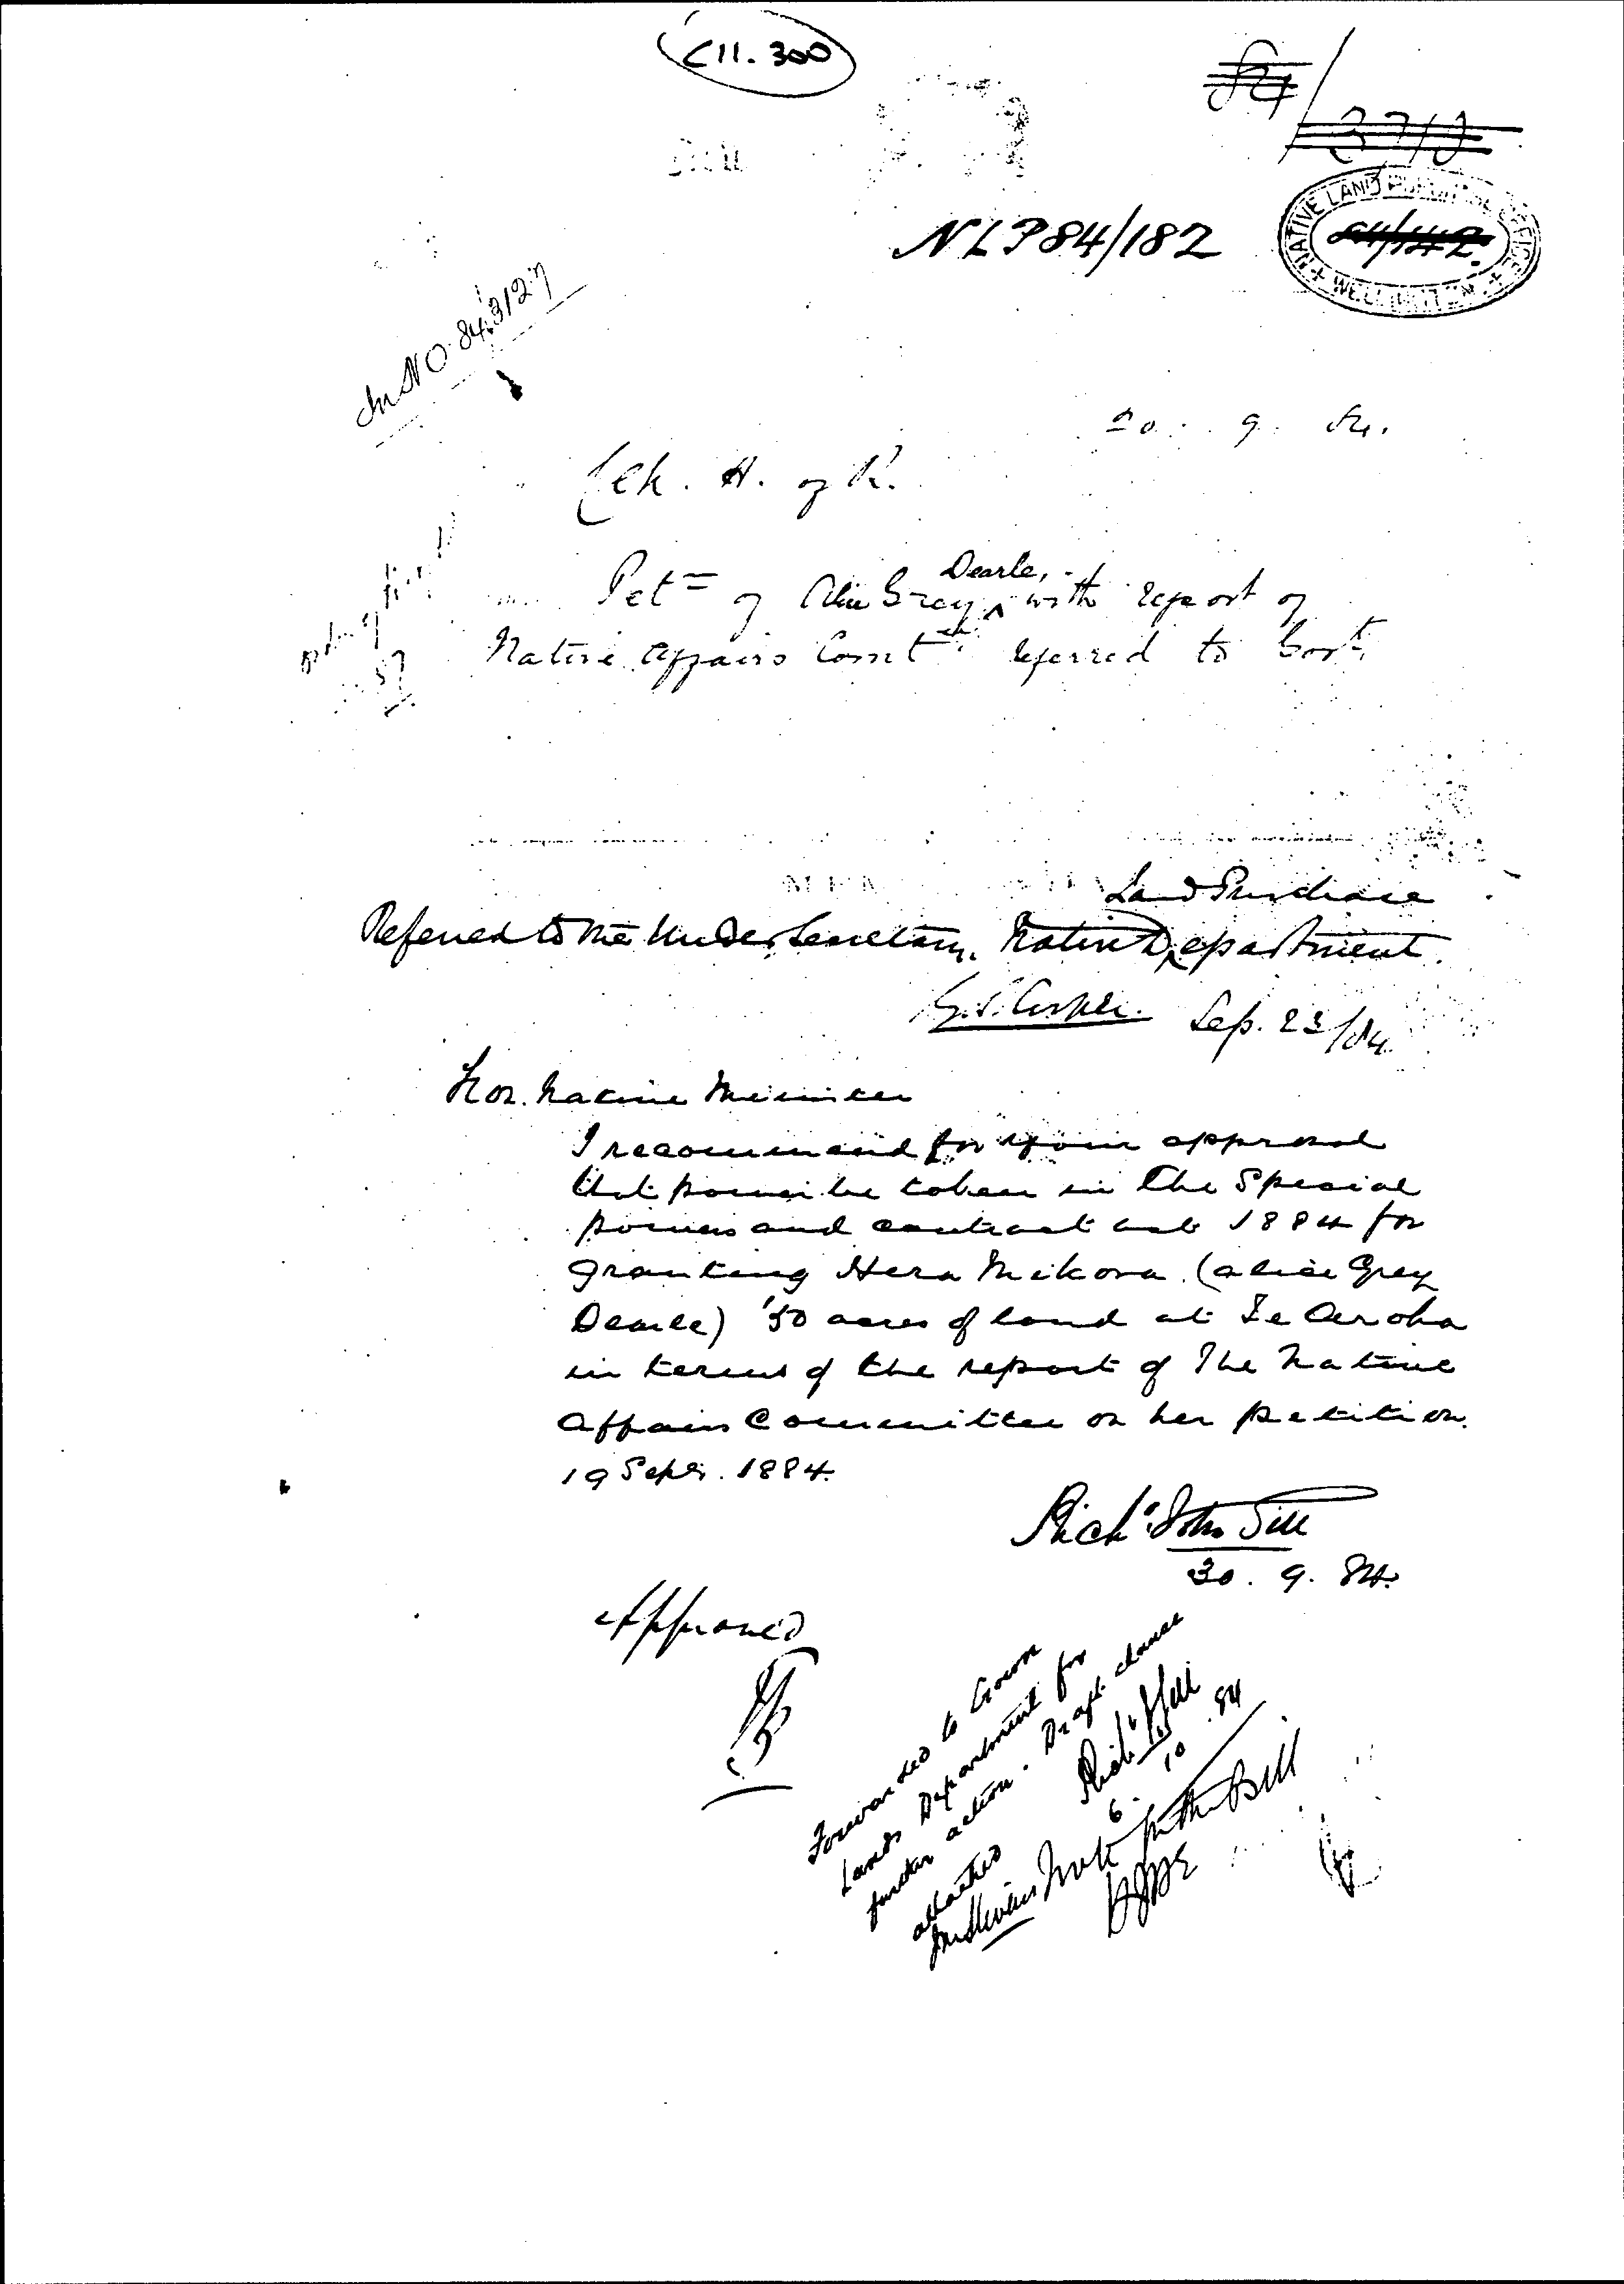 C11. 300
84/
3710
NLP 84/182
NATIVE LAND PURCHASE OFFICE
WELLINGTON
84/182
In NO. 84/3127
20. 9. 84.
Clk. H. of R.
Petn of Alice Grey Dearle, with report of
Native Affairs Comtee referred to Govt.
Land Purchase
Referred to the Under Secretary, Native Department.
G.S. Cooper. Sep. 23/84
Hon. Native Minister
I recommend for your approval
that power be taken in the Special
powers and contract act 1884 for
granting Hera Mikora (alice Grey
Dearle) 50 acres of land at Te Aroha
in terms of the report of The Native
Affairs Committee on her petition.
19 Sepr. 1884.
Richd John Gill
30. 9. 84.
Approved
Forwarded to Crown
Lands Department for
further action. Draft clause
attached
Richd J Gill
6. 10. 84
in the Bill